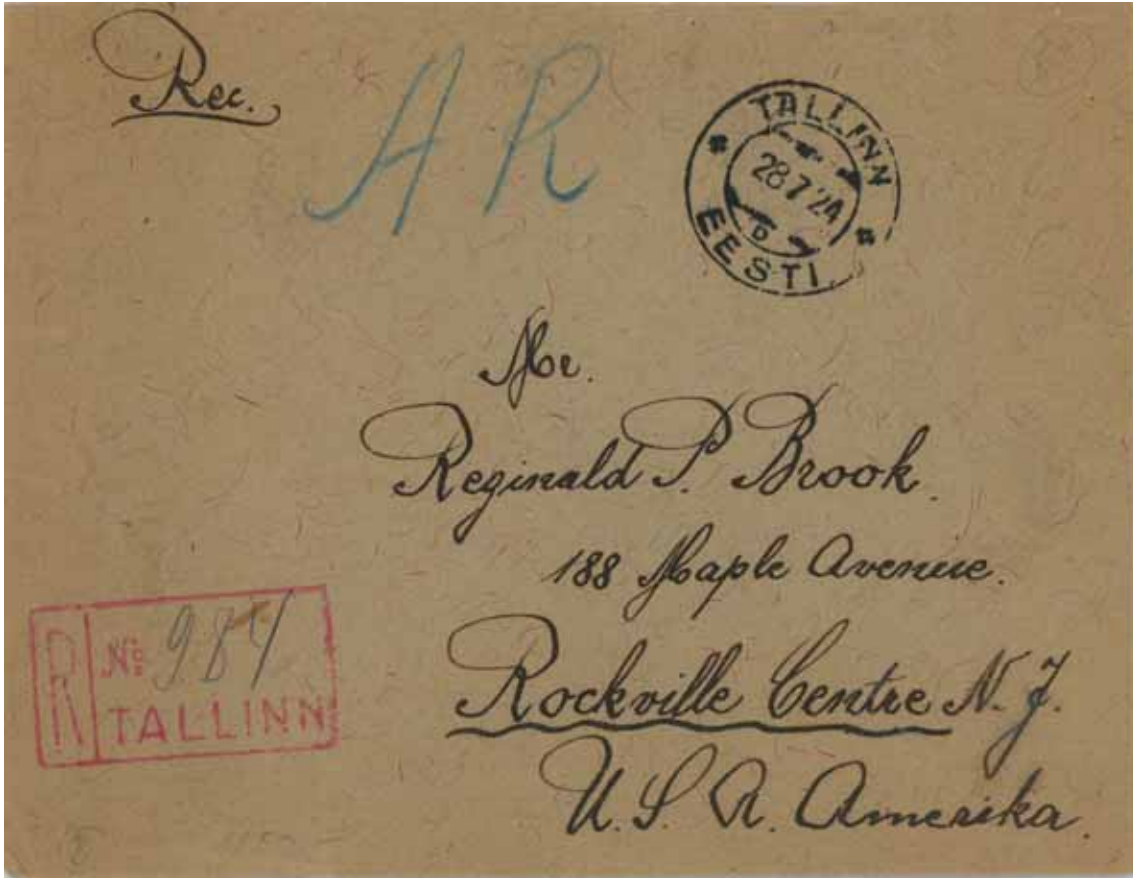 Rec.
A R
TALLINN
28 7 24
EESTI
Mr.
Reginald P. Brook.
188 Maple Avenue.
Rockville Centre N. J.
U. S. A. Amerika.
R № 984
TALLINN